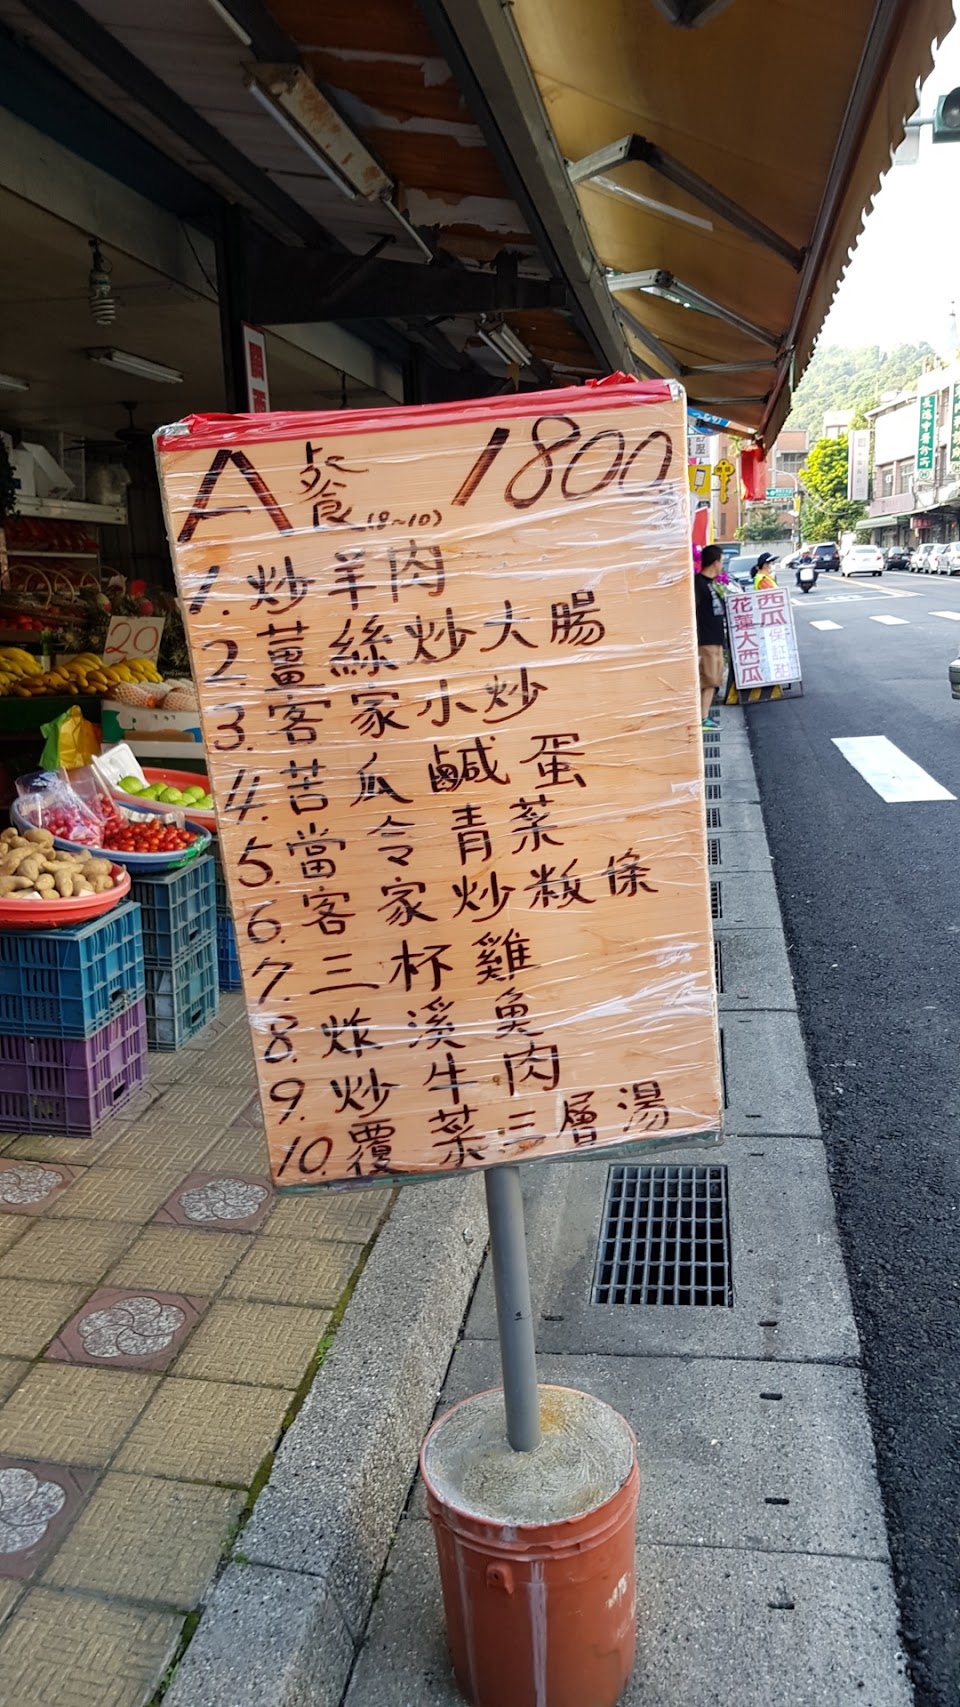 A餐(8~10) 1800
1. 炒羊肉
2. 薑絲炒大腸
3. 客家小炒
4. 苦瓜鹹蛋
5. 當令青菜
6. 客家炒粄條
7. 三杯雞
8. 炸溪魚
9. 炒牛肉
10. 覆菜三層湯
20
西瓜保証甜
花蓮大西瓜